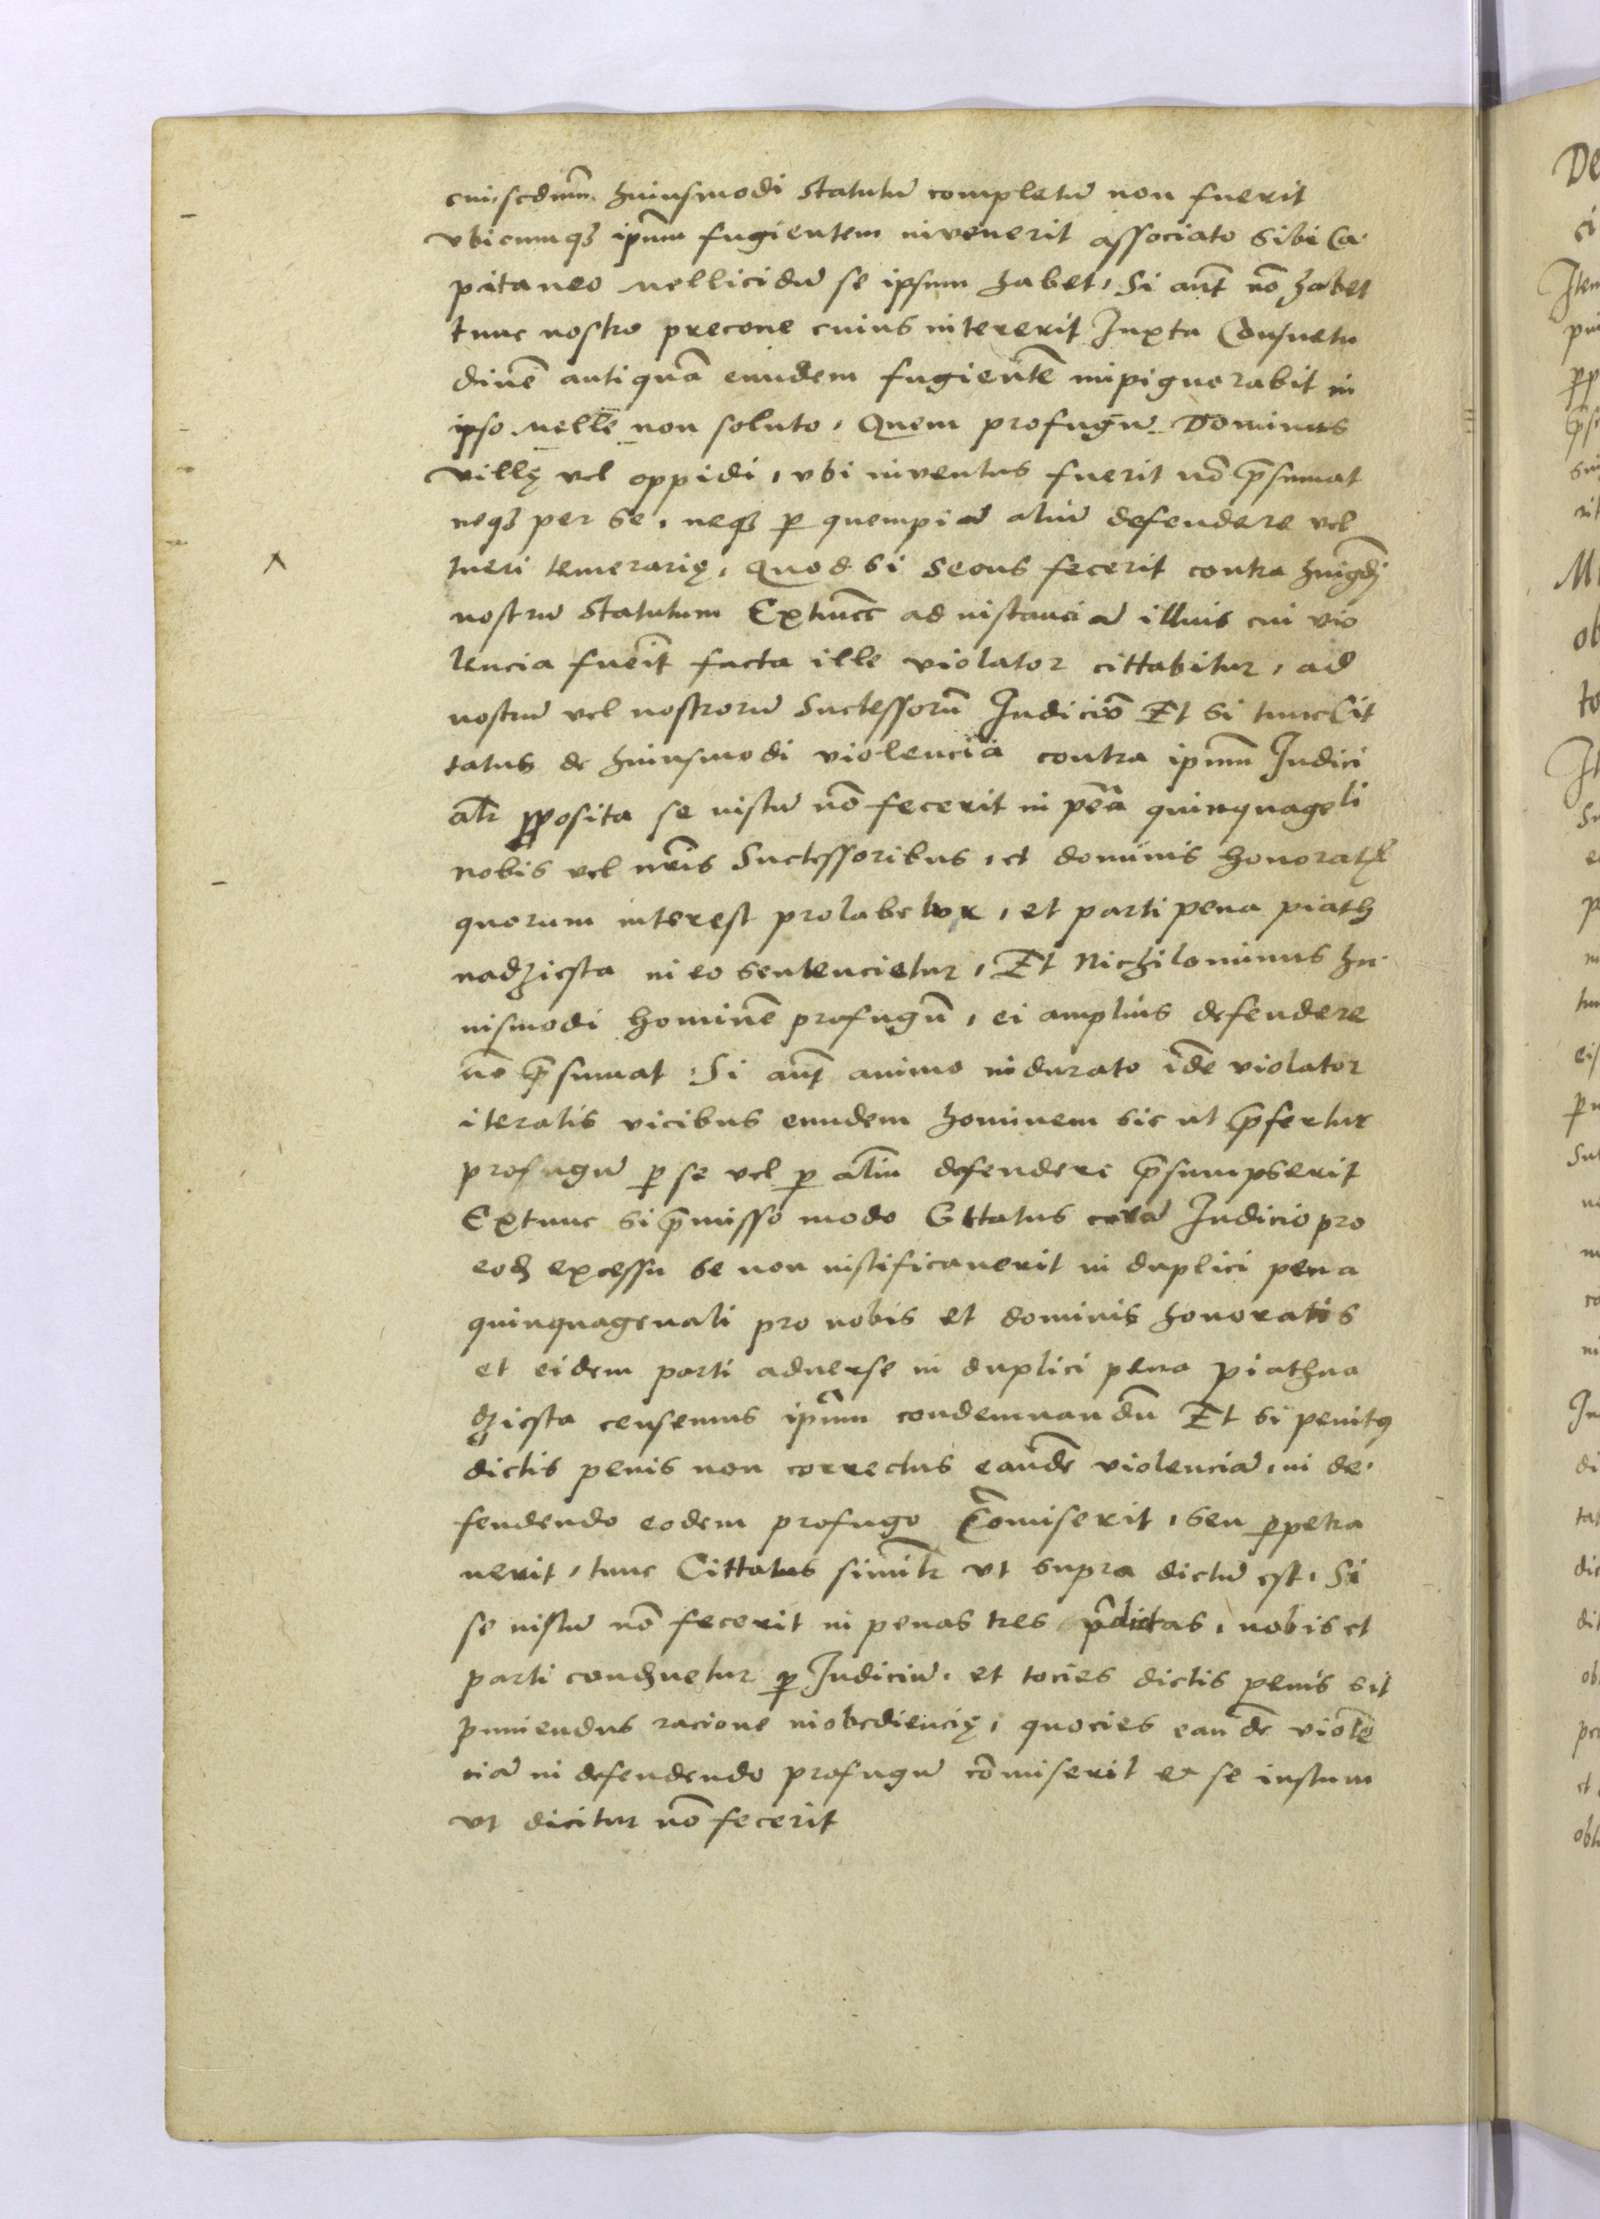 huiusmodi statutū completū non fuerit
vbicumqȝ ipm̄m fugientem invenerit associato sibi Ca·
pitaneo se ipsum habet, Si aūt nō habet
tunc nostro precone cuius intererit Juxta Consuetu
dinē antiquā eundem fugientē inpignorabit in
ipso non soluto, Quem profugū Dominus
villę vel oppidi, vbi inventus fuerit nō p̄sumat
neqȝ per se, neqȝ p quempiā aliū defendere vel
tueri temerarię, Quod si secus fecerit contra
nostrū statutum Extunc ad instanciā illius cui vio
lencia fuerit facta ille violator cittabitur, ad
nostrū vel nostrorū Suctessorū Judiciō Et si tunc Cit
tatus de huiusmodi violencia contra ipm̄m Judici
alr pposita se iustū nō fecerit in pēa quinquageli
nobis vel nr̄is Suctessoribus, et dominis honorat
quorum interest prolabetur, et parti pena piath
nadzicsta in eo sentencietur, Et Nichilominus hu·
iusmodi hominē profugū, ei amplius defendere
nō p̄sumat, Si aūt animo indurato idē violator
iteratis vicibus eundem hominem sic ut p̄fertur
profugū p se vel p aliū defendere p̄sumpserit
Extunc si p̄misso modo Cittatus corā Judicio pro
eodȝ excessu se non iustificauerit in duplici pena
quinquagenali pro nobis et dominis honoratis
et eidem parti aduerse in duplici pena piathna
dzicsta censemus ipm̄m condemnandū Et si penitꝰ
dictis penis non correctus eandē violenciā, in de·
fendendo eodem profugo cōmiserit, seu ppetra
uerit, tunc Cittatus simir vt supra dictū est, Si
se iustū nō fecerit in penas tres p̄dictas, nobis et
parti p Judiciū, et tocies dictis penis sit
puniendus racione inobediencię, quocies eandē violē
ciā in defendendo profugū cōmiserit & se iustum
vt dicitur nō fecerit